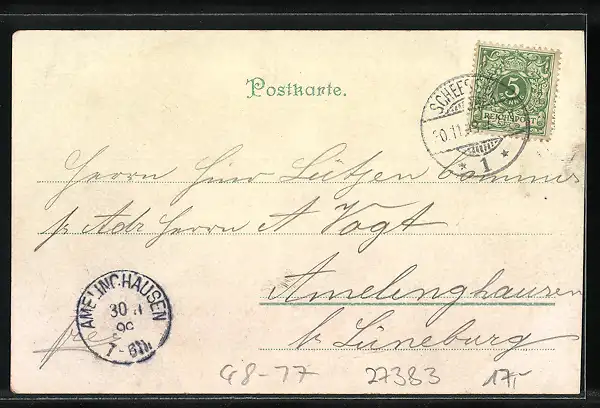 Postkarte.
5
REICHSPOST
30.11.
1
Herrn Lütjen
p Adr Herrn A Vogt
Amelinghausen
b Lüneburg
AMELINGHAUSEN
30 11
99
7-8N
frei
G8-77 27383 17,-